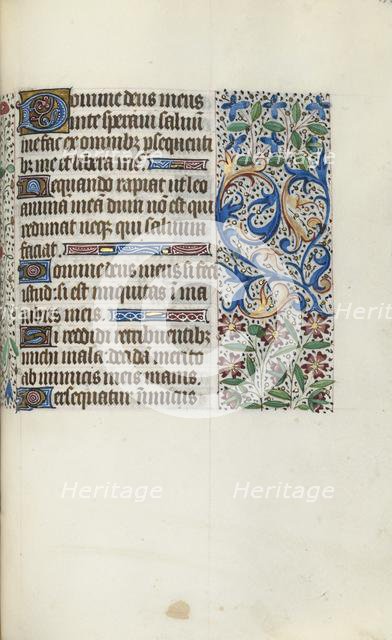 Domine deus meus
in te speravi salvu
me fac ex omnibz psequenti
bz me et libera me
Nequando rapiat ut leo
anima mea dum no est qui
redimat neqz qui saluum
faciat
Domine deus meus si feci
istud si est iniquitas i ma
nibz meis
Si reddidi retribuentibz
michi mala decida merito
ab inimicis meis inanis
Persequatur inimicus
Heritage
Heritage
Heritage
Heritage